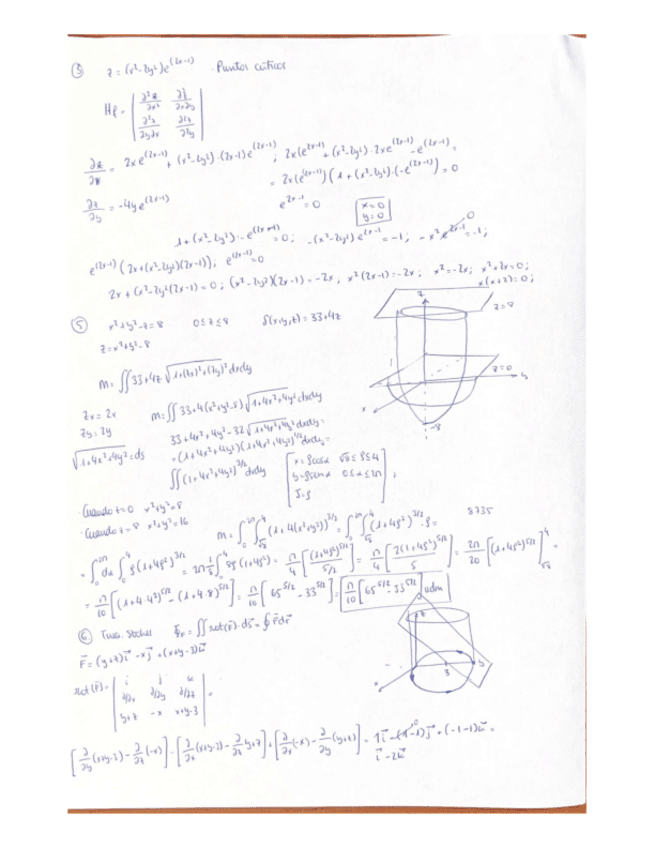 ③ z = (x²-2y²)e^(2x-1) · Puntos críticos
Hf = | ∂²z/∂x² ∂²z/∂x∂y |
| ∂²z/∂y∂x ∂²z/∂²y |
∂z/∂x = 2xe^(2x-1) + (x²-2y²)·(2x-1)e^(2x-1) ; 2x(e^(2x-1) + (x²-2y²)·2xe^(2x-1) - e^(2x-1) =
= 2x(e^(2x-1))(1+(x²-2y²)·(-e^(2x-1)) = 0
∂z/∂y = -4ye^(2x-1) e^(2x-1) = 0 x=0 y=0
1+(x²-2y²)·-e^(2x-1) = 0 ; -(x²-2y²)e^(2x-1) = -1 ; -x²e^(2x-1) = -1 ;
e^(2x-1)(2x+(x²-2y²)(2x-1)) ; e^(2x-1) = 0
2x+(x²-2y²)(2x-1) = 0 ; (x²-2y²)(2x-1) = -2x , x²(2x-1) = -2x ; x² = -2x ; x²+2x = 0 ;
x(x+2) = 0 ;
⑤ x²+y²-z=8 0≤z≤8 δ(x,y,z) = 33+4z
z = x²+y²-8
z
z=8
z=0
y
x
-8
m = ∬ 33+4z √(1+(zx)²+(zy)²) dxdy
zx = 2x m = ∬ 33+4(x²+y²-8) √(1+4x²+4y²) dxdy
zy = 2y 33+4x²+4y²-32 √(1+4x²+4y²) dxdy =
√(1+4x²+4y²) = ds = (1+4x²+4y²)(1+4x²+4y²)^1/2 dxdy =
∬ (1+4x²+4y²)^3/2 dxdy
x = ρcosα √8≤ρ≤4
y = ρsinα 0≤α≤2π ;
J = ρ
· Cuando z=0 x²+y²=8
· Cuando z=8 x²+y²=16
m = ∫₀^2π ∫_√8^4 (1+4(x²+y²))^3/2 = ∫₀^2π ∫_√8^4 (1+4ρ²)^3/2·ρ = 8735
= ∫₀^2π dα ∫₀^4 ρ(1+4ρ²)^3/2 = 2π 1/8 ∫₀^4 8ρ(1+4ρ²) = π/4 [(1+4ρ²)^5/2 / 5/2] = π/4 [2(1+4ρ²)^5/2 / 5] = 2π/20 [(1+4ρ²)^5/2]_√8^4 =
= π/10 [(1+4·4²)^5/2 - (1+4·8)^5/2] = π/10 [65^5/2 - 33^5/2] = π/10 [65^5/2 - 33^5/2] udm
⑥ Teo. Stokes Φ_F = ∬ rot(F)·ds = ∮ F dr
F = (y+z)i - xj + (x+y-3)k
z
y
3
x
rot(F) = | i j k |
| ∂/∂x ∂/∂y ∂/∂z | =
| y+z -x x+y-3 |
[∂/∂y (x+y-3) - ∂/∂z (-x)] - [∂/∂x (x+y-3) - ∂/∂z y+z] + [∂/∂x (-x) - ∂/∂y (y+z)] = 1i - (1-1)j + (-1-1)k =
i - 2k